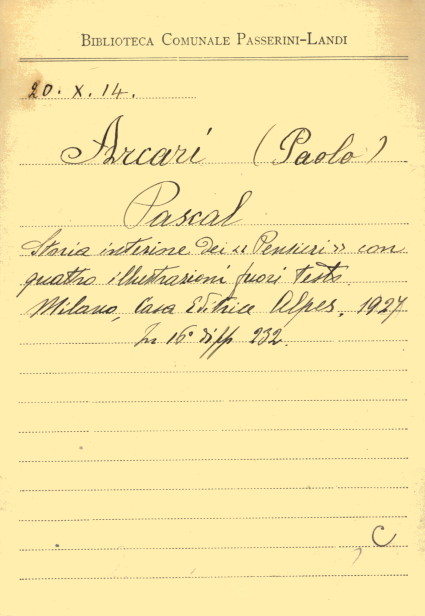 BIBLIOTECA COMUNALE PASSERINI-LANDI
20. X. 14.
Arcari (Paolo)
Pascal
Storia interine dei «Pensieri» con
quattro illustrazioni fuori testo
Milano, Casa Editrice Alpes, 1927
In 16° di pp 232.
C